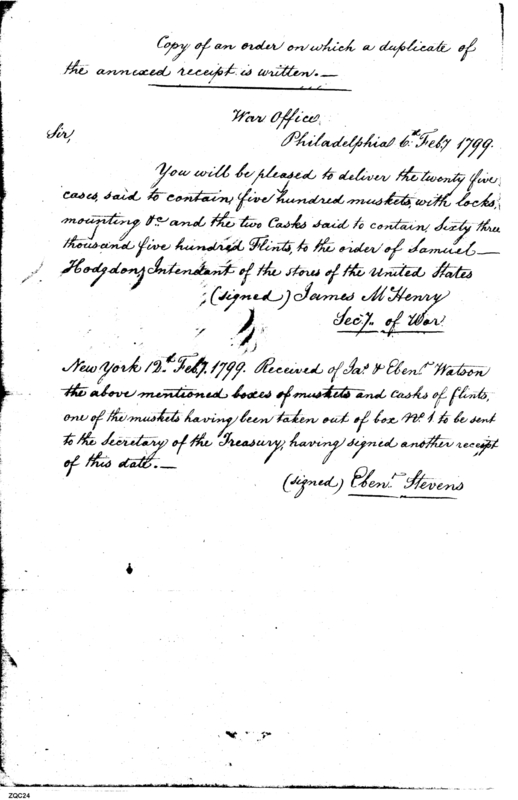 Copy of an order on which a duplicate of
the annexed receipt is written.—
War Office,
Philadelphia 6th Feby 1799.
Sir,
You will be pleased to deliver the twenty five
cases, said to contain, five hundred muskets, with locks,
mounting &c and the two Casks said to contain, Sixty three
thousand five hundred Flints, to the order of Samuel—
Hodgdon, Intendant of the stores of the United States
(signed) James McHenry
Secy. of War
New York 12th Feby. 1799. Received of Jas & Ebenr Watson
the above mentioned boxes of muskets and casks of flints,
one of the muskets having been taken out of box No 1 to be sent
to the Secretary of the Treasury, having signed another receipt
of this date.—
(signed) Ebenr Stevens
ZQC24